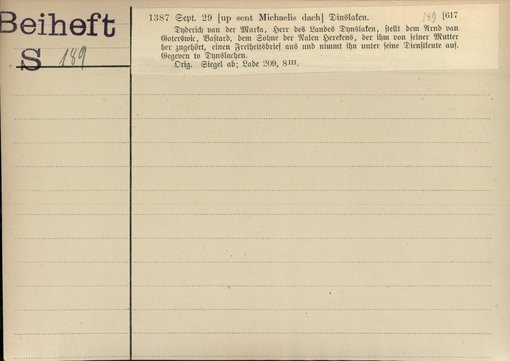 Beiheft
S 189
1387 Sept. 29 [up sent Michaelis dach] Dinslaken. 189 [617
Dyderich van der Marka, Herr des Landes Dynslaken, stellt dem Arnd van
Goterswic, Bastard, dem Sohne der Nalen Herekens, der ihm von seiner Mutter
her zugehört, einen Freiheitsbrief aus und nimmt ihn unter seine Dienstleute auf.
Gegeven to Dynslachen.
Orig. Siegel ab; Lade 209, 8III.